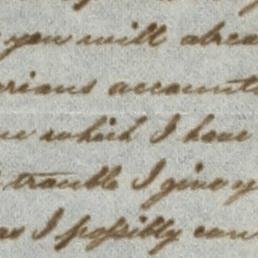 you will alrea
rious accounts
which I have
trouble I give y
as I possibly can